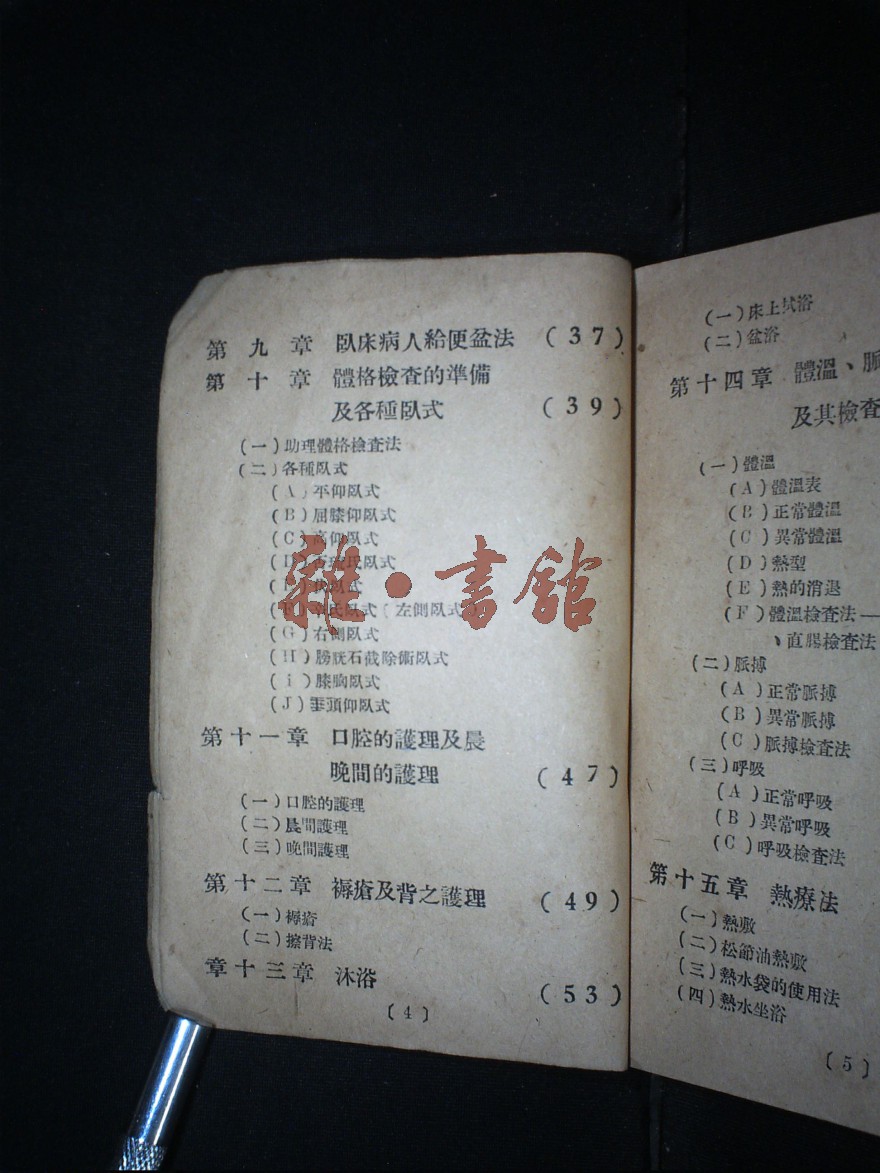 第九章 臥床病人給便盆法 (37)
第十章 體格檢查的準備
及各種臥式 (39)
(一)助理體格檢查法
(二)各種臥式
(A)平仰臥式
(B)屈膝仰臥式
(C)高仰臥式
氏臥式
臥式
氏臥式〔左側臥式
(G)右側臥式
(H)膀胱石截除術臥式
(i)膝胸臥式
(J)垂頭仰臥式
第十一章 口腔的護理及晨
晚間的護理 (47)
(一)口腔的護理
(二)晨間護理
(三)晚間護理
第十二章 褥瘡及背之護理 (49)
(一)褥瘡
(二)擦背法
章十三章 沐浴 (53)
〔4〕
雜·書館
(一)床上拭浴
(二)盆浴
第十四章 體溫、脈
及其檢查
(一)體溫
(A)體溫表
(B)正常體溫
(C)異常體溫
(D)熱型
(E)熱的消退
(F)體溫檢查法—
、直腸檢查法
(二)脈搏
(A)正常脈搏
(B)異常脈搏
(C)脈搏檢查法
(三)呼吸
(A)正常呼吸
(B)異常呼吸
(C)呼吸檢查法
第十五章 熱療法
(一)熱敷
(二)松節油熱敷
(三)熱水袋的使用法
(四)熱水坐浴
〔5〕